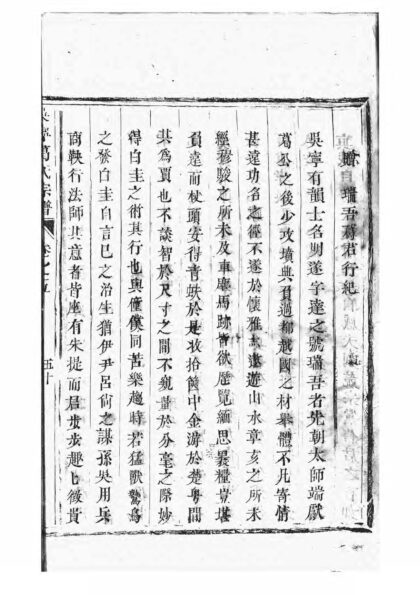 瑞吾葛君行紀
吳寧有韻士名明遂字達之號瑞吾者先朝太師端獻
葛公之後少攻墳典負過柳越國之材舉體不凡寄情
甚達功名之徑不遂於懷雅志遨遊山水章亥之所未
經穆駿之所未及車塵馬跡皆欲歷覽緬思異糧豈堪
負達而杖頭安得青蚨於是收拾篋中金游於楚粵間
其為賈也不談智於尺寸之間不窺量於分毫之際妙
得白圭之術其行也與僮僕同苦樂趨時若猛獸鷙鳥
之發白圭自言已之治生猶伊尹呂尚之謀孫吳用兵
商鞅行法師其意者皆座有朱提而君步步趣後貴
葛氏宗譜
五十